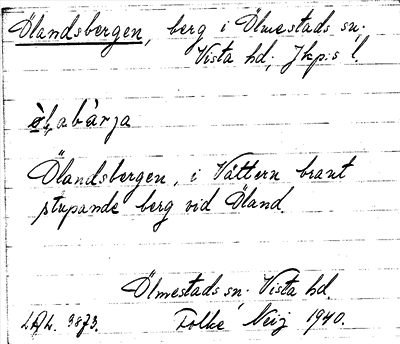 Ölandsbergen, berg i Ölmestads sn,
Vista hd, Jkp:s l.
Ölandsbergen, i Vättern brant
stupande berg vid Öland.
Ölmestads sn, Vista hd.
LAL. 3873. Folke Neij 1940.